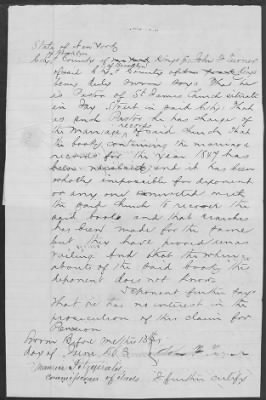 State of New York
of Brooklyn
City & County of Kings ss John
of said City & County of Kings
being duly sworn says That he
is Pastor of St James Church situate
in Jay Street in said City. That
as such Pastor he has charge of
the marriage records of said Church that
the book containing the marriage
records for the year 1847 has
been and it has been
wholly impossible for deponent
or any one connected with
the said church to recover the
said book and that searches
has been made for the same
but they have proved una
vailing and that the where
abouts of the said book the
deponent does not know.
Deponent further says
That he has no interest in the
prosecution of this claim for
Pension
Sworn Before me this 18th
day of June
Maurice Fitzgerald
Commissioner of Deeds
I further certify